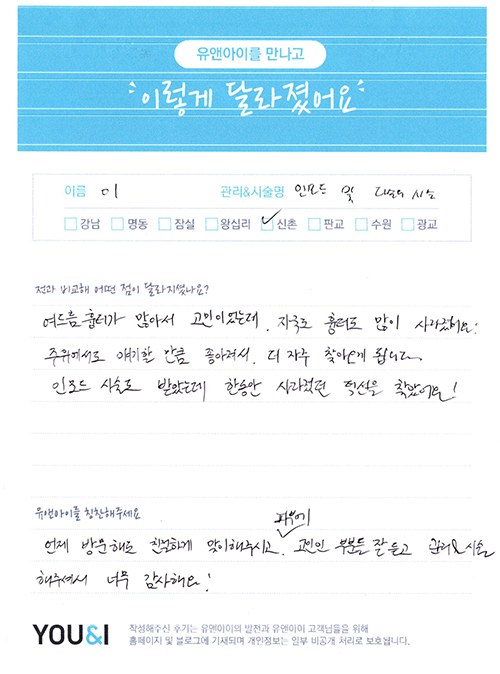 유앤아이를 만나고
이렇게 달라졌어요
이름 이 관리&시술명 인모드 및 시술
강남 명동 잠실 왕십리 신촌 판교 수원 광교
전과 비교해 어떤 점이 달라지셨나요?
여드름 흉터가 많아서 고민이었는데, 자국도 흉터도 많이 사라졌어요!
주위에서도 얘기할 만큼 좋아져서, 더 자주 찾아오게 됩니다.
인모드 시술도 받았는데 한동안 사라졌던 턱선을 찾았어요!
유앤아이를 칭찬해주세요
피부에
언제 방문해도 친절하게 맞이해주시고, 고민인 부분도 잘 듣고 시술
해주셔서 너무 감사해요!
YOU&I 작성해주신 후기는 유앤아이의 발전과 유앤아이 고객님들을 위해
홈페이지 및 블로그에 기재되며 개인정보는 일부 비공개 처리로 보호됩니다.